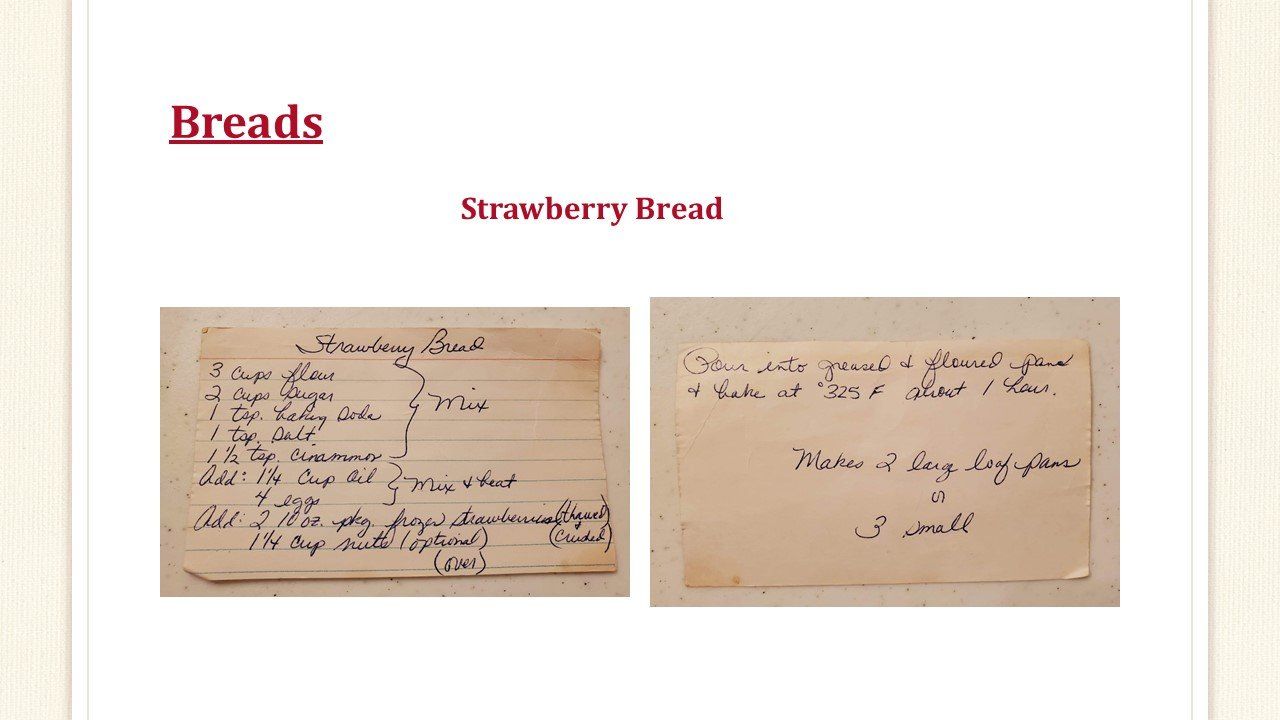 Breads
Strawberry Bread
Strawberry Bread
3 cups flour
2 cups sugar
1 tsp. baking soda
1 tsp. salt
1 1/2 tsp. cinammon
Mix
Add: 1 1/4 cup oil
4 eggs
Mix & beat
Add: 2 10 oz. pkg. frozen strawberries (thawed)
(crushed)
1 1/4 cup nuts (optional)
(over)
Pour into greased & floured pans
& bake at °325 F about 1 hour.
Makes 2 large loaf pans
or
3 small